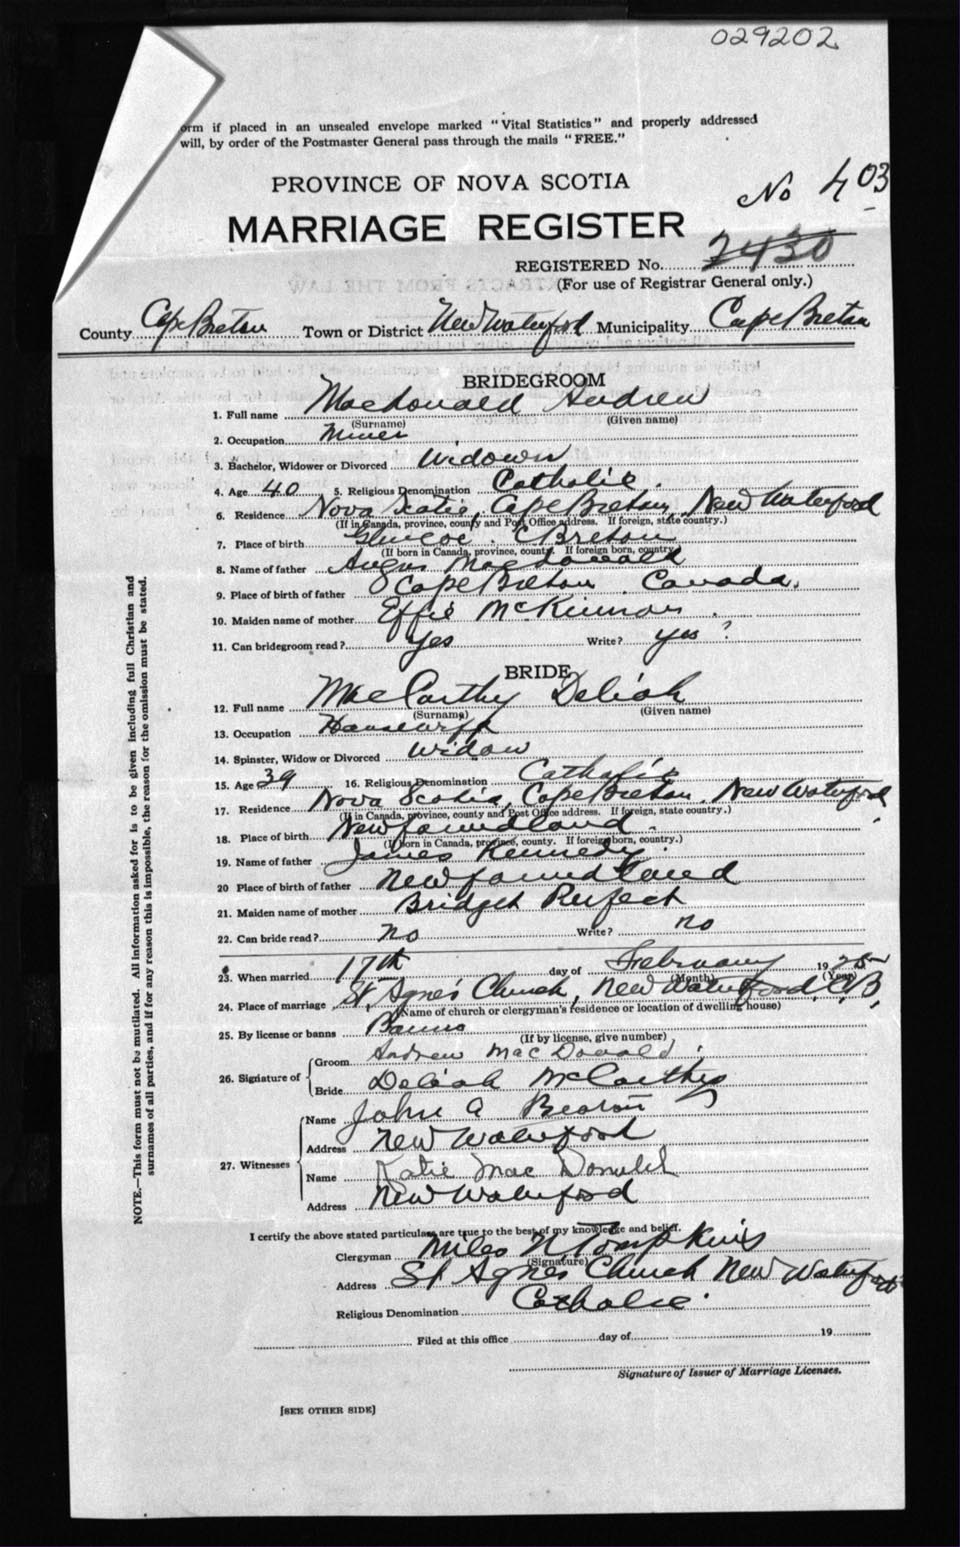 029202
orm if placed in an unsealed envelope marked "Vital Statistics" and properly addressed
will, by order of the Postmaster General pass through the mails "FREE."
PROVINCE OF NOVA SCOTIA
No 403
MARRIAGE REGISTER
REGISTERED No. 2430
(For use of Registrar General only.)
County Cape Breton Town or District New Waterford Municipality Cape Breton
BRIDEGROOM
1. Full name MacDonald Andrew
(Surname) (Given name)
2. Occupation Miner
3. Bachelor, Widower or Divorced Widower
4. Age 40 5. Religious Denomination Catholic.
6. Residence Nova Scotia, Cape Breton, New Waterford
(If in Canada, province, county and Post Office address. If foreign, state country.)
7. Place of birth Glencoe. C Breton
(If born in Canada, province, county. If foreign born, country
8. Name of father Angus MacDonald
9. Place of birth of father Cape Breton Canada.
10. Maiden name of mother Effie McKinnon
11. Can bridegroom read? Yes Write? yes?
BRIDE
12. Full name MacCarthy Deliah
(Surname) (Given name)
13. Occupation Housewife
14. Spinster, Widow or Divorced Widow
15. Age 39 16. Religious Denomination Catholic
17. Residence Nova Scotia, Cape Breton, New Waterford
(If in Canada, province, county and Post Office address. If foreign, state country.)
18. Place of birth Newfoundland.
(If born in Canada, province, county. If foreign born, country.)
19. Name of father James Kennedy.
20 Place of birth of father Newfoundland
21. Maiden name of mother Bridget Perfect
22. Can bride read? no Write? no
23. When married 17th day of February 1925
(Month) (Year)
24. Place of marriage St. Agnes Church, New Waterford, C.B.
(Name of church or clergyman's residence or location of dwelling house)
25. By license or banns Banns
(If by license, give number)
26. Signature of Groom Andrew MacDonald
Bride Deliah McCarthy
27. Witnesses Name John A Beaton
Address New Waterford
Name Katie MacDonald
Address New Waterford
I certify the above stated particulars are true to the best of my knowledge and belief.
Clergyman Miles N Tompkins
(Signature)
Address St Agnes Church New Waterford
Religious Denomination Catholic.
Filed at this office day of 19
Signature of Issuer of Marriage Licenses.
[SEE OTHER SIDE]
NOTE.—This form must not be mutilated. All information asked for is to be given including full Christian and
surnames of all parties, and if for any reason this is impossible, the reason for the omission must be stated.